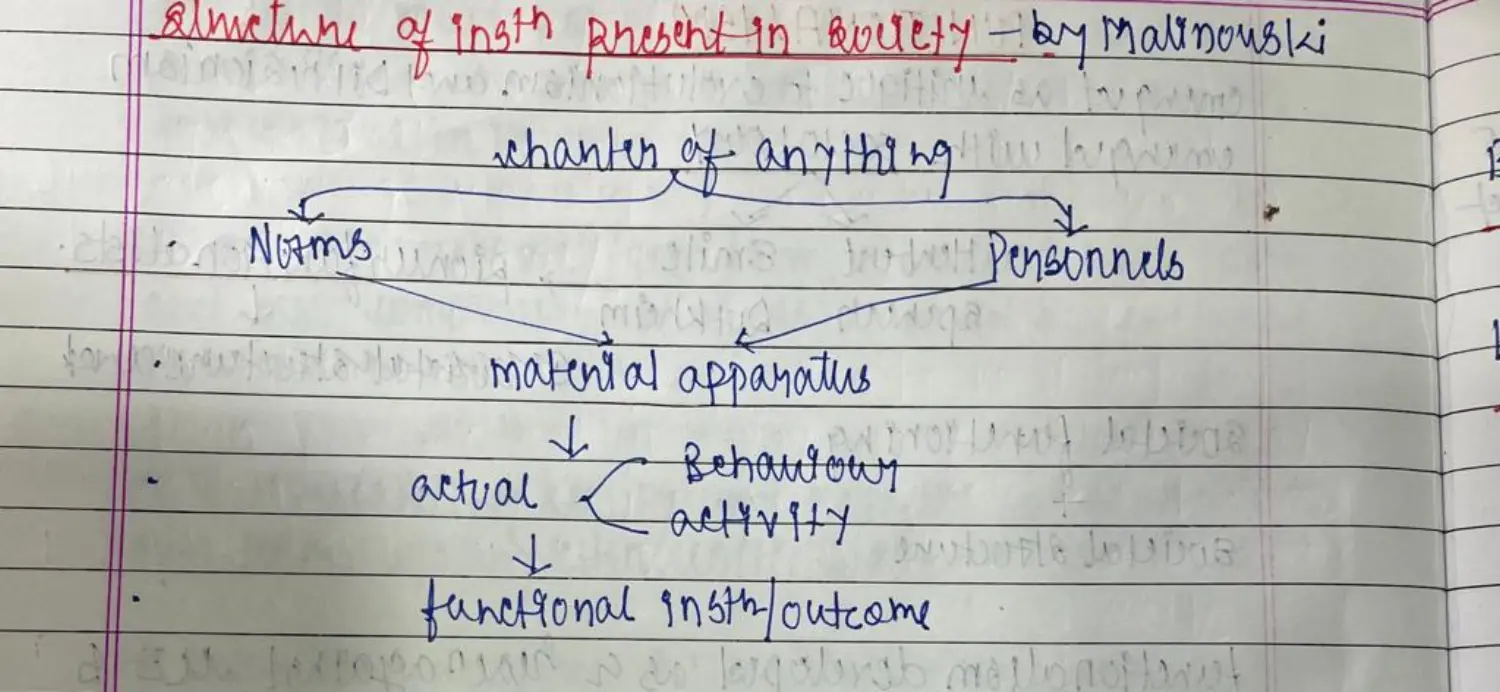 structure of instn present in society - by Malinouski
charter of anything
Norms Personnels
material apparatus
Behaviour
actual
activity
functional instn/outcome